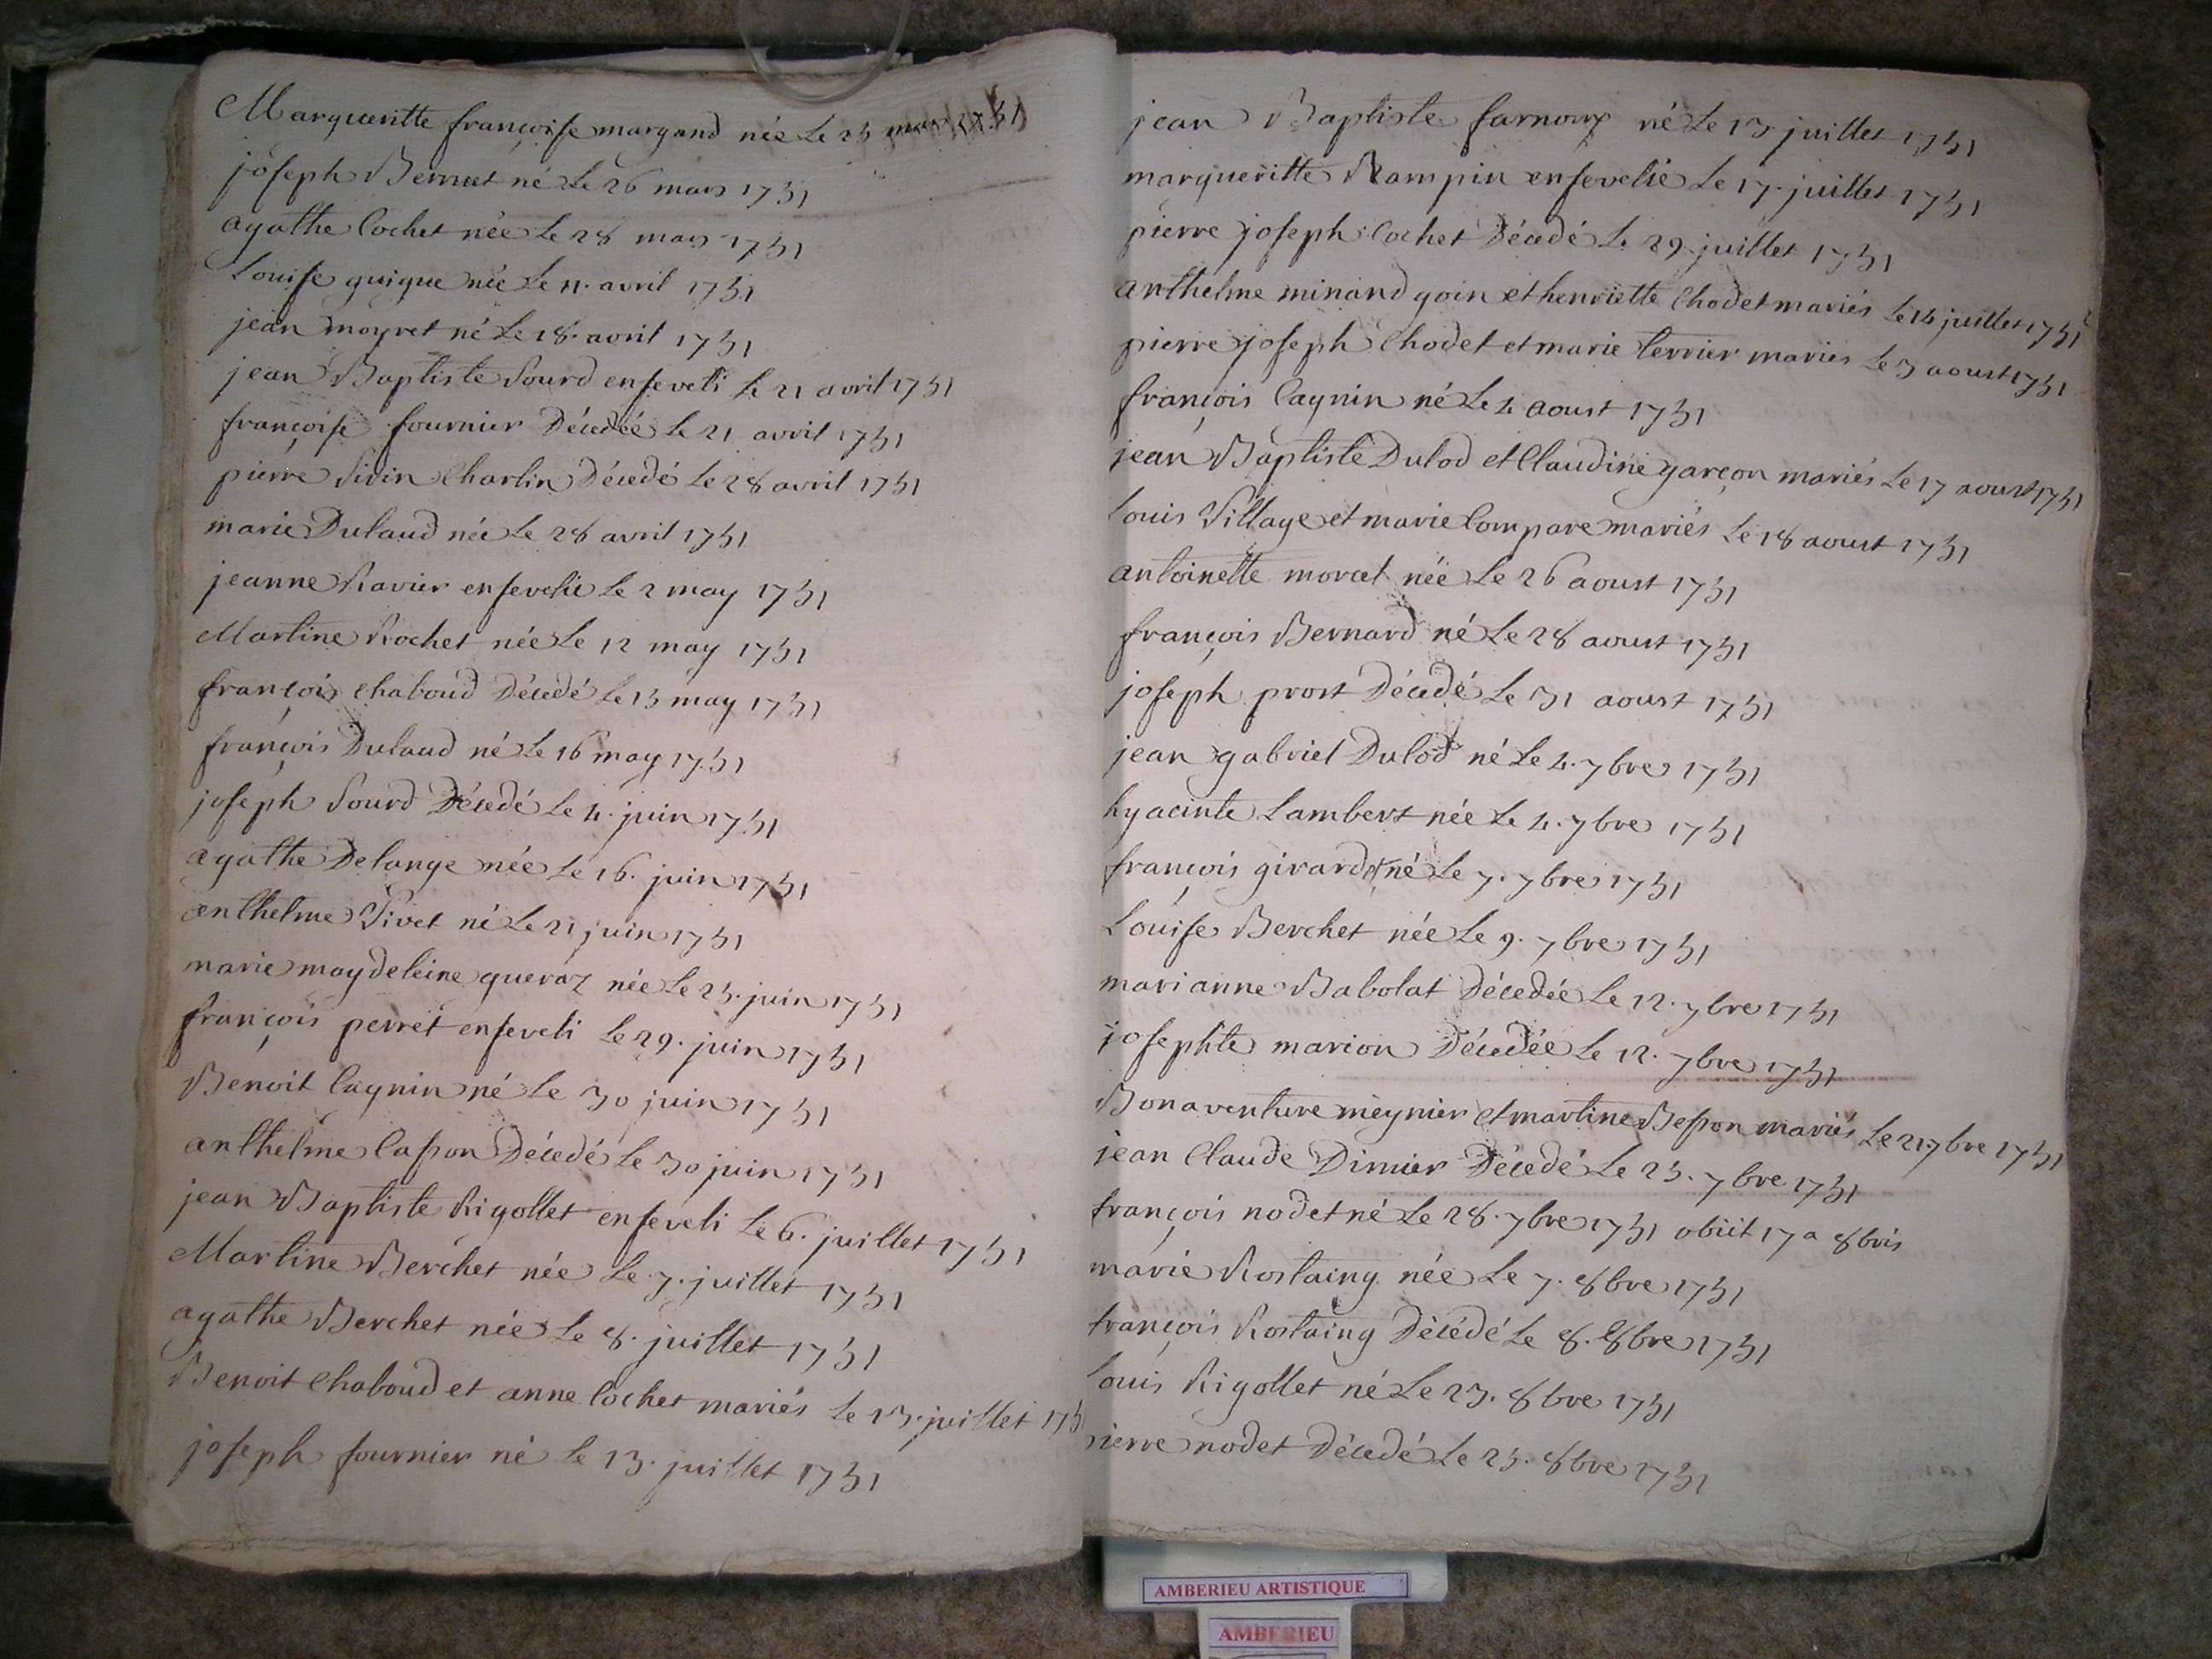 Margueritte françoise margand née Le 25 mars 1751
joseph Bernet né Le 26 mars 1751
agathe Cochet née Le 28 mars 1751
Louise guigue née Le 11. avril 1751
jean moyret né Le 18. avril 1751
jean Baptiste Sourd enseveli Le 21 avril 1751
françoise fournier Décedée Le 21 avril 1751
pierre Sivin Charlin Décedé Le 28 avril 1751
marie Dulaud née Le 28 avril 1751
jeanne Ravier ensevelie Le 2 may 1751
Martine Rochet née Le 12 may 1751
françois chaboud Décedé Le 15 may 1751
françois Dulaud né Le 16 may 1751
joseph Sourd Décedé Le 4. juin 1751
agathe Delange née Le 16. juin 1751
anthelme Sivet né Le 21 juin 1751
marie magdeleine queraz née Le 25. juin 1751
françois perret enseveli Le 29. juin 1751
Benoit Cagnin né Le 30 juin 1751
anthelme Casson Décedé Le 30 juin 1751
jean Baptiste Rigollet enseveli Le 6. juillet 1751
Martine Berchet née Le 7. juillet 1751
agathe Berchet née Le 8. juillet 1751
Benoit Chaboud et anne Cochet mariés Le 13. juillet 175
joseph fournier né Le 13. juillet 1751
jean Baptiste farnoux né Le 13 juillet 1751
margueritte Rampin ensevelie Le 17. juillet 1751
pierre joseph Cochet Décedé Le 29. juillet 1751
anthelme minand goin et henriette Chodet mariés Le 14 juillet 1751
pierre joseph Chodet et marie terrier mariés Le 3 aoust 1751
françois Cagnin né Le 4 aoust 1751
jean Baptiste Dulod et Claudine garçon mariés Le 17 aoust 1751
Louis Village et marie Compare mariés Le 18 aoust 1751
antoinette morcel née Le 26 aoust 1751
françois Bernard né Le 28 aoust 1751
joseph prost Décedé Le 31 aoust 1751
jean gabriel Dulod né Le 4. 7bre 1751
hyacinte Lambert née Le 4. 7bre 1751
françois girard né Le 7. 7bre 1751
Louise Berchet née Le 9. 7bre 1751
marianne Babolat Décedée Le 12. 7bre 1751
josephte marion Décedée Le 12. 7bre 1751
Bonaventure meynier et martine Besson mariés Le 21. 7bre 1751
jean Claude Dimier Décedé Le 25. 7bre 1751
françois nodet né Le 28. 7bre 1751 obiit 17a 8bris
marie Rostaing née Le 7. 8bre 1751
françois Rostaing Décédé Le 8. 8bre 1751
Louis Rigollet né Le 23. 8bre 1751
pierre nodet Décedé Le 25. 8bre 1751
AMBERIEU ARTISTIQUE
AMBERIEU